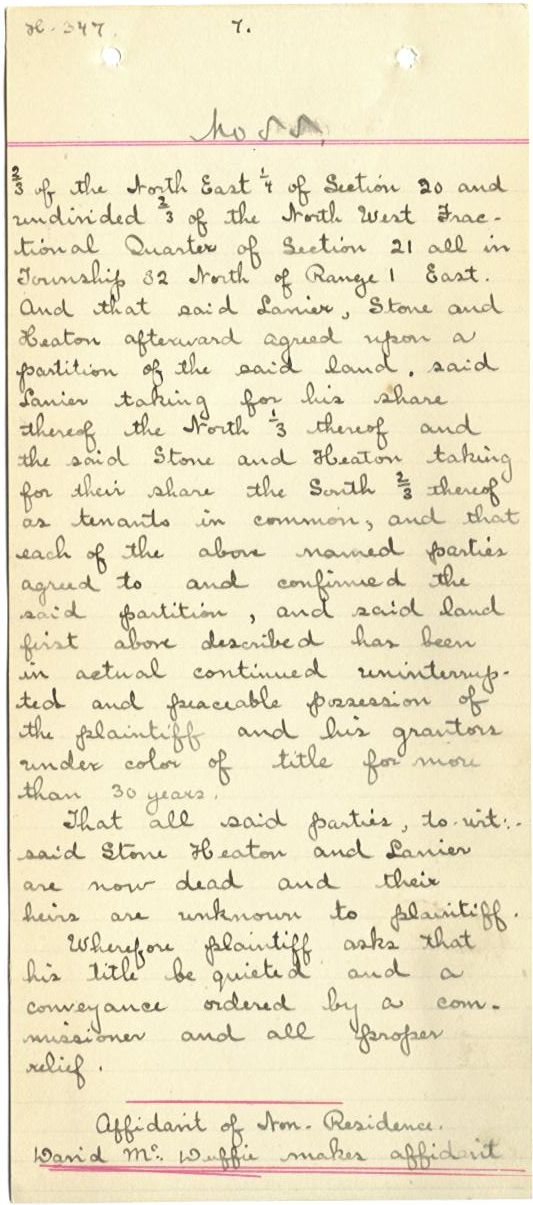 H-347. 7.
Moss.
2/3 of the North East 1/4 of Section 20 and
undivided 2/3 of the North West Frac-
tional Quarter of Section 21 all in
Township 32 North of Range 1 East.
And that said Lanier, Stone and
Heaton afterward agreed upon a
partition of the said land. said
Lanier taking for his share
thereof the North 1/3 thereof and
the said Stone and Heaton taking
for their share the South 2/3 thereof
as tenants in common, and that
each of the above named parties
agreed to and confirmed the
said partition, and said land
first above described has been
in actual continued uninterrup-
ted and peaceable possession of
the plaintiff and his grantors
under color of title for more
than 30 years.
That all said parties, to-wit:-
said Stone Heaton and Lanier
are now dead and their
heirs are unknown to plaintiff.
Wherefore plaintiff asks that
his title be quieted and a
conveyance ordered by a com-
missioner and all proper
relief.
Affidavit of Non-Residence.
David Mc. Duffie makes affidavit